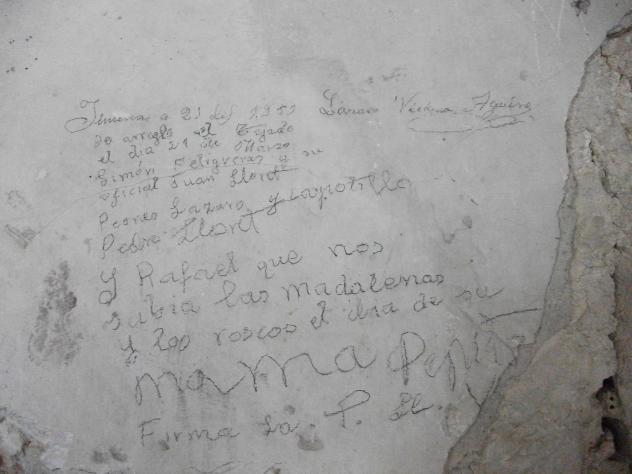 Jimena a 21 del 1951
se arreglo el Tejado
el dia 21 de Marzo
Simón y su
oficial Juan Lloret
Peones Lazaro y Capotillo
Pedro Lloret
Y Rafael que nos
subia las madalenas
y los roscos el dia de su
mama Pepita
Firma La. P. Ll.
Lázaro Viedma